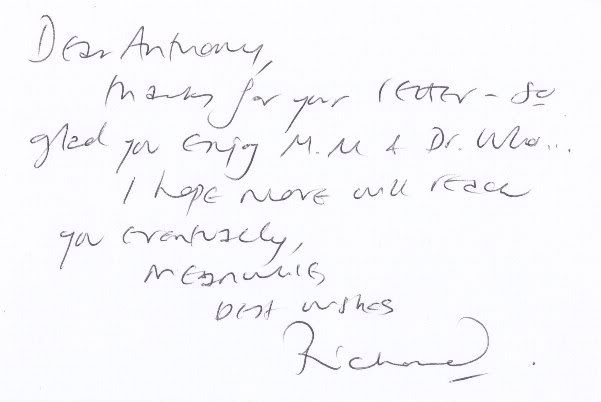 Dear Anthony,
thanks for your letter - so
glad you enjoy M.M & Dr. Who...
I hope more will reach
you eventually,
Meanwhile,
best wishes
Richard.